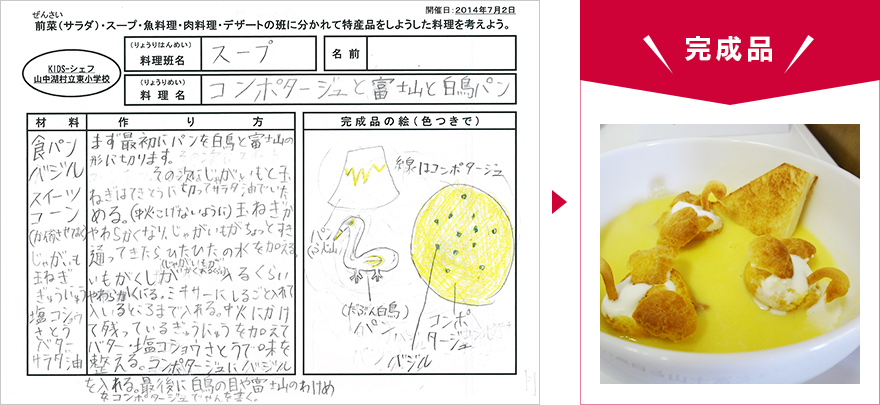 開催日:2014年7月2日
ぜんさい
前菜(サラダ)・スープ・魚料理・肉料理・デザートの班に分かれて特産品をしようした料理を考えよう。
KIDS-シェフ
山中湖村立東小学校
(りょうりはんめい)
料理班名
スープ
名前
(りょうりめい)
料理名
コンポタージュと富士山と白鳥パン
材料
作り方
完成品の絵(色つきで)
食パン
バジル
スイーツ
コーン
じゃがいも
玉ねぎ
ぎゅうにゅう
塩コショウ
さとう
バター
サラダ油
まず最初にパンを白鳥と富士山の
形に切ります。
その次はじゃがいもと玉
ねぎはてきとうに切ってサラダ油でいた
める。(中火こげないように)玉ねぎが
やわらかくなり、じゃがいもがちょっとすき
通ってきたらひたひたの水を加える。
いもがくしが入るくらい
やわらかくにる。ミキサーにしるごと入れて
中火にかけ
て残っているぎゅうにゅうを加えて
バター・塩コショウさとうで味を
整える。コンポタージュにバジル
を入れる。最後に白鳥の目や富士山のわけめ
をコンポタージュで
線はコンポタージュ
パン
(ふじ山)
(たぶん白鳥)
パン
コンポ
タージュ
バジル
完成品